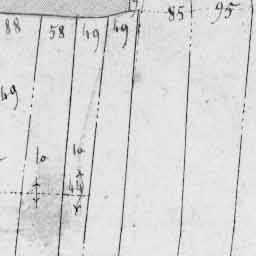 85 95
88 58 49 49
49
10 10
44